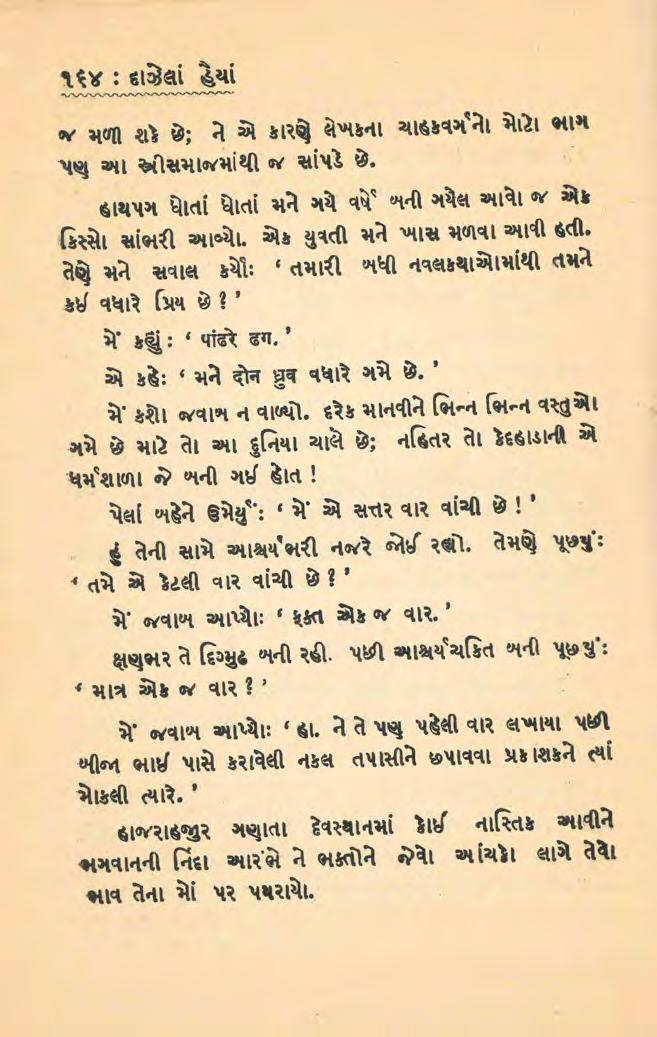 ૧૬૪ : દાઝેલાં હૈયાં
જ મળી શકે છે; ને એ કારણે લેખકના ચાહકવર્ગનો મોટો ભાગ
પણ આ સ્ત્રીસમાજમાંથી જ સાંપડે છે.
હાથપગ ધોતાં ધોતાં મને ગયે વર્ષે બની ગયેલ આવો જ એક
કિસ્સો સાંભરી આવ્યો. એક યુવતી મને ખાસ મળવા આવી હતી.
તેણે મને સવાલ કર્યોઃ ‘ તમારી બધી નવલકથાઓમાંથી તમને
કઈ વધારે પ્રિય છે ? ’
મેં કહ્યું : ‘ પાંઢરે ઢગ. ’
એ કહેઃ ‘ મને દોન ધ્રુવ વધારે ગમે છે. ’
મેં કશો જવાબ ન વાળ્યો. દરેક માનવીને ભિન્ન ભિન્ન વસ્તુઓ
ગમે છે માટે તો આ દુનિયા ચાલે છે; નહિતર તો કેદહાડાની એ
ધર્મશાળા જ બની ગઈ હોત !
પેલાં બહેને ઉમેર્યુંઃ ‘ મેં એ સત્તર વાર વાંચી છે ! ’
હું તેની સામે આશ્ચર્યભરી નજરે જોઈ રહ્યો. તેમણે પૂછ્યુંઃ
‘ તમે એ કેટલી વાર વાંચી છે ? ’
મેં જવાબ આપ્યોઃ ‘ ફક્ત એક જ વાર. ’
ક્ષણભર તે દિગ્મુઢ બની રહી. પછી આશ્ચર્યચકિત બની પૂછ્યુંઃ
‘ માત્ર એક જ વાર ? ’
મેં જવાબ આપ્યોઃ ‘ હા. ને તે પણ પહેલી વાર લખાયા પછી
બીજા ભાઈ પાસે કરાવેલી નકલ તપાસીને છપાવવા પ્રકાશકને ત્યાં
મોકલી ત્યારે. ’
હાજરાહજુર ગણાતા દેવસ્થાનમાં કોઈ નાસ્તિક આવીને
ભગવાનની નિંદા આરંભે ને ભક્તોને જેવો આંચકો લાગે તેવો
ભાવ તેના મોં પર પથરાયો.